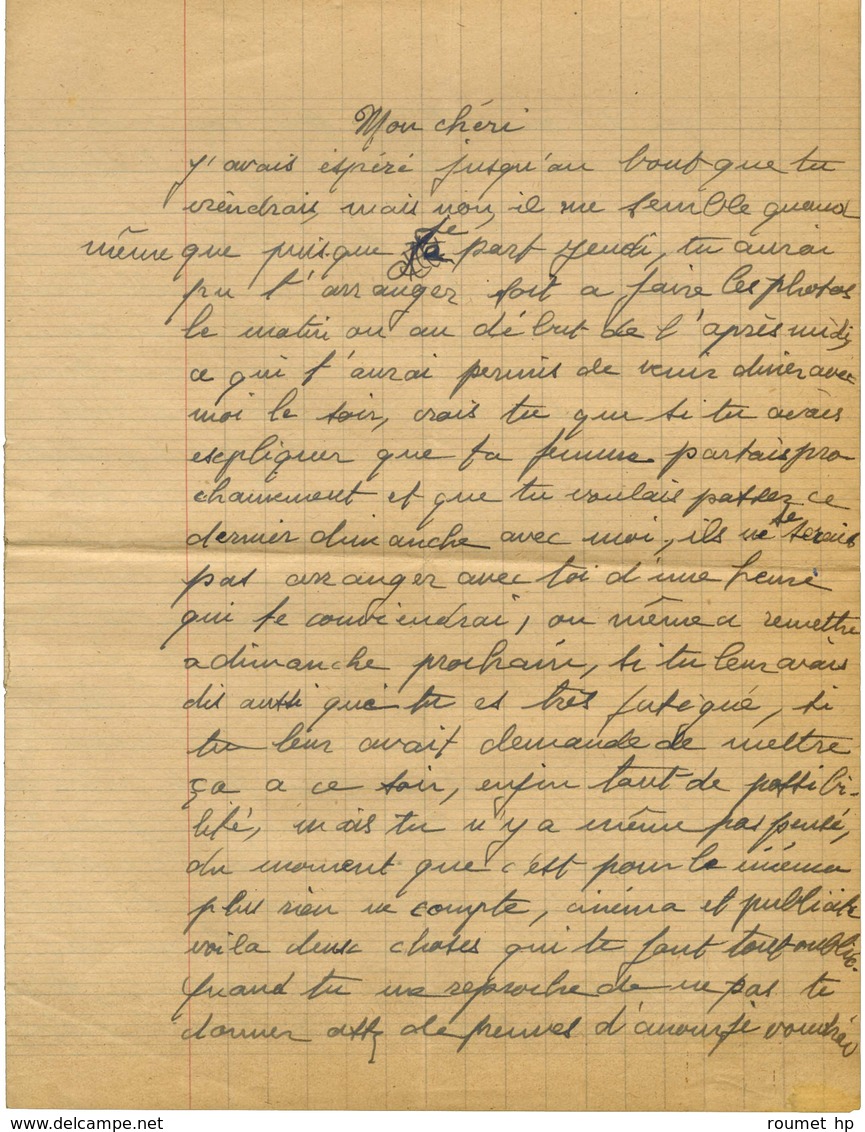 Mon chéri
j'avais espéré jusqu'au bout que tu
viendrais, mais non, il me semble quand
même que puisque je part jeudi, tu aurai
pu t'arranger soit a faire les photos
le matin ou au début de l'après midi,
ce qui t'aurai permis de venir diner avec
moi le soir, crois tu que si tu avais
expliquer que ta femme partais pro
chainement et que tu voulais passez ce
dernier dimanche avec moi, ils ne se serais
pas arranger avec toi d'une heure
qui te conviendrai, ou même a remettre
a dimanche prochain, si tu leur avais
dis aussi que tu es très fatigué, si
tu leur avait demande de mettre
ça a ce soir, enfin tant de possibi-
lité, mais tu n'y a même pas pensé,
du moment que c'est pour le cinéma
plus rien ne compte, cinéma et publicité
voila deux choses qui te font tout oublié.
Quand tu me reproche de ne pas te
donner assez de preuves d'amour, je voudrai
roumet hp